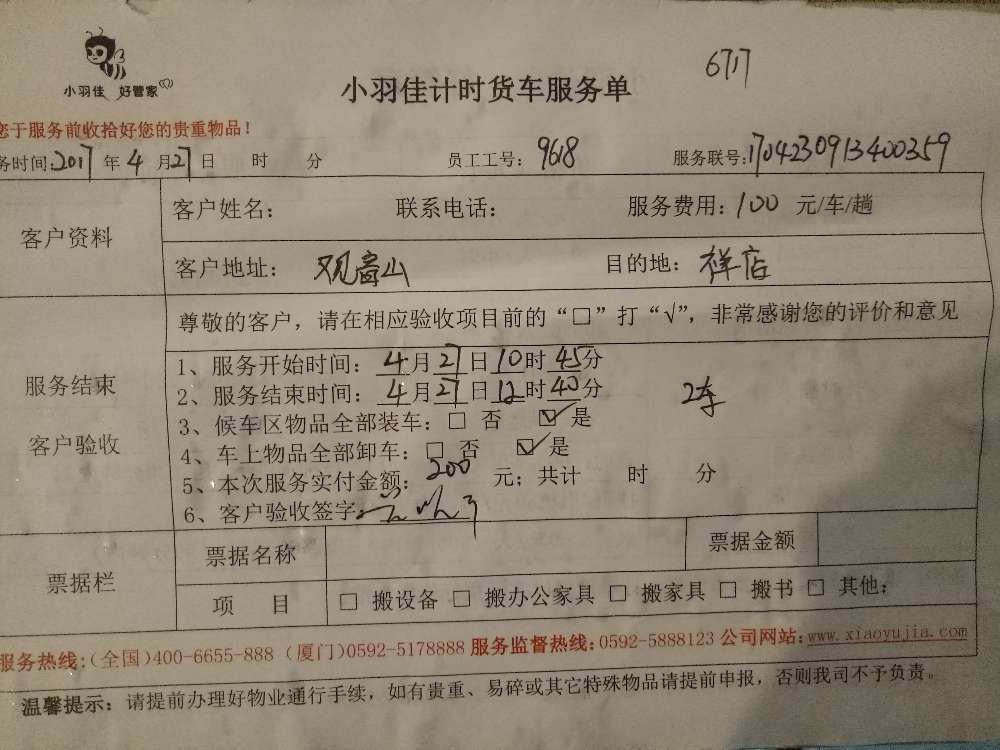 小羽佳 好管家
6717
小羽佳计时货车服务单
您于服务前收拾好您的贵重物品！
务时间：2017 年 4 月 27 日 时 分 员工工号：9618 服务联号：1704230913400359
客户资料
客户姓名： 联系电话： 服务费用：100 元/车/趟
客户地址：观音山 目的地：祥店
服务结束
客户验收
尊敬的客户，请在相应验收项目前的“□”打“√”，非常感谢您的评价和意见
1、服务开始时间：4月27日10时45分
2、服务结束时间：4月27日12时40分
2车
3、候车区物品全部装车：□ 否 ☑ 是
4、车上物品全部卸车：□ 否 ☑ 是
5、本次服务实付金额：200 元；共计 时 分
6、客户验收签字：
票据栏
票据名称 票据金额
项 目 □ 搬设备 □ 搬办公家具 □ 搬家具 □ 搬书 □ 其他：
服务热线：（全国）400-6655-888 （厦门）0592-5178888 服务监督热线：0592-5888123 公司网站：www.xiaoyujia.com
温馨提示：请提前办理好物业通行手续，如有贵重、易碎或其它特殊物品请提前申报，否则我司不予负责。